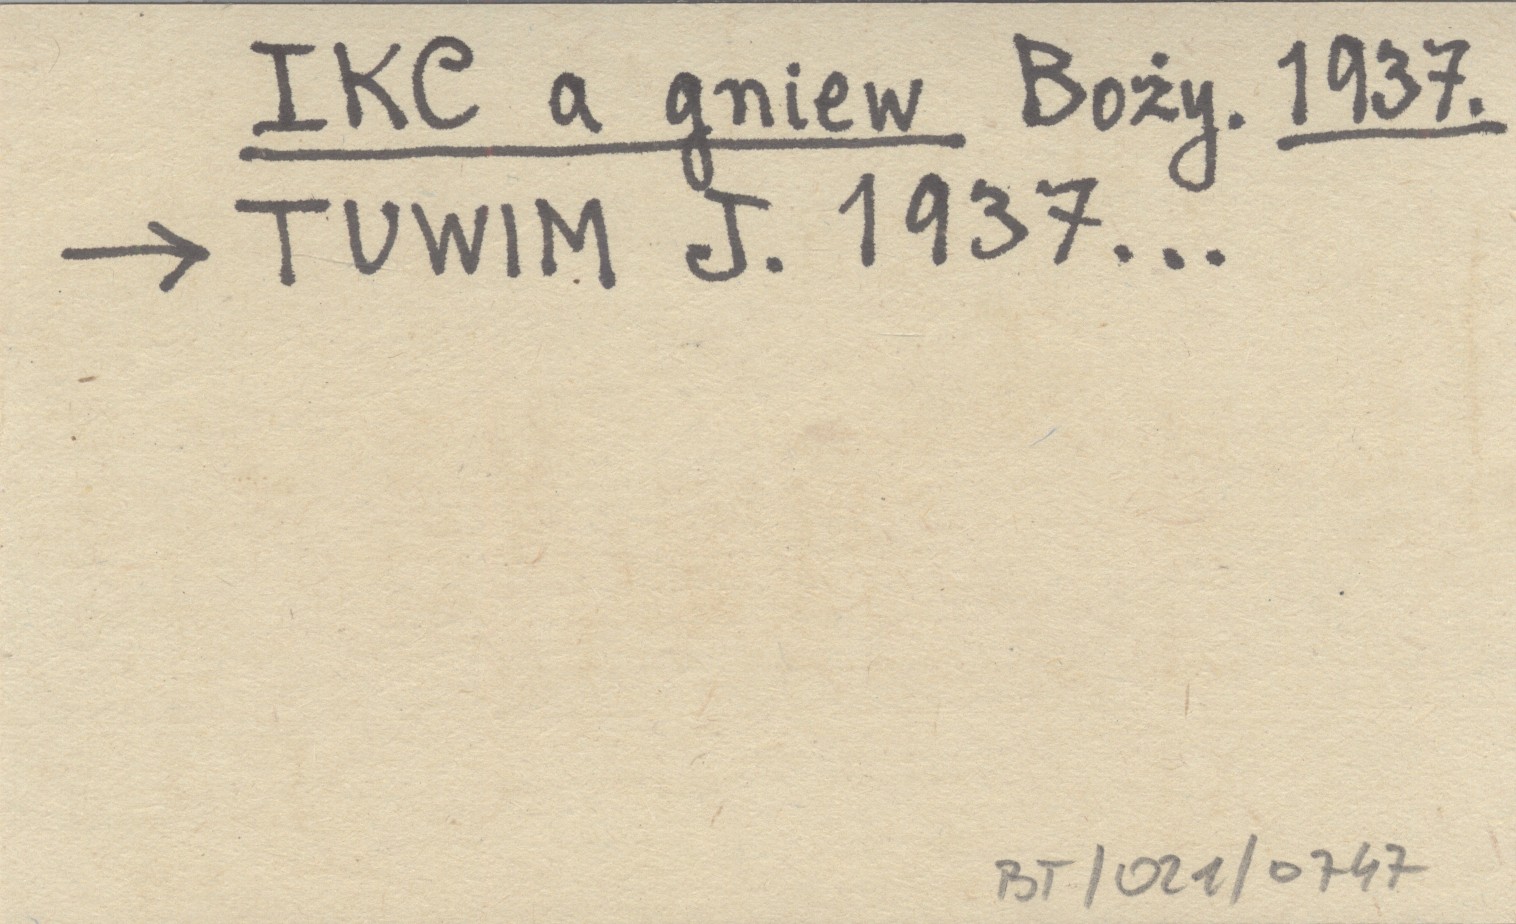 IKC a gniew Boży. 1937.
→ TUWIM J. 1937...
BT/021/0747